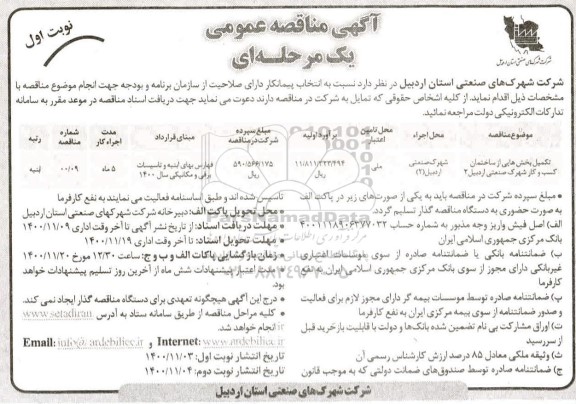 آگهی مناقصه عمومی
یک مرحله‌ای
نوبت اول
شرکت شهرک‌های صنعتی استان اردبیل
شرکت شهرک‌های صنعتی استان اردبیل در نظر دارد نسبت به انتخاب پیمانکار دارای صلاحیت از سازمان برنامه و بودجه جهت انجام موضوع مناقصه با
مشخصات ذیل اقدام نماید. از کلیه اشخاص حقوقی که تمایل به شرکت در مناقصه دارند دعوت می نماید جهت دریافت اسناد مناقصه در موعد مقرر به سامانه
تدارکات الکترونیکی دولت مراجعه نمائید.
موضوع مناقصه محل اجراء محل تامین اعتبار برآورد اولیه مبلغ سپرده شرکت در مناقصه مبنای قرارداد مدت اجراء کار شماره مناقصه رتبه
تکمیل بخش هایی از ساختمان کسب و کار شهرک صنعتی اردبیل۲ شهرک صنعتی اردبیل(۲) ملی ۱۱/۸۱۱/۳۲۳/۴۹۴ ریال ۵۹۰/۵۶۶/۱۷۵ ریال فهارس بهای ابنیه و تاسیسات برقی و مکانیکی سال ۱۴۰۰ ۵ ماه ۰۰/۰۹ ابنیه
• مبلغ سپرده شرکت در مناقصه باید به یکی از صورت‌های زیر در پاکت الف
به صورت حضوری به دستگاه مناقصه گذار تسلیم گردد:
الف) اصل فیش واریز وجه مذبور به شماره حساب
بانک مرکزی جمهوری اسلامی ایران
ب) ضمانتنامه بانکی یا ضمانتنامه صادره از سوی موسسات اعتباری
غیربانکی دارای مجوز از سوی بانک مرکزی جمهوری اسلامی ایران به نفع
کارفرما
پ) ضمانتنامه صادره توسط موسسات بیمه گر دارای مجوز لازم برای فعالیت
و صدور ضمانتنامه از سوی بیمه مرکزی ایران به نفع کارفرما
ت) اوراق مشارکت بی نام تضمین شده بانک‌ها و دولت با قابلیت بازخرید قبل
از سررسید
ث) وثیقه ملکی معادل ۸۵ درصد ارزش کارشناس رسمی آن
ج) ضمانتنامه صادره توسط صندوق‌های ضمانت دولتی که به موجب قانون
تاسیس شده اند و طبق اساسنامه فعالیت می نمایند به نفع کارفرما
• محل تحویل پاکت الف: دبیرخانه شرکت شهرکهای صنعتی استان اردبیل
• مهلت دریافت اسناد: از تاریخ نشر آگهی تا آخر وقت اداری ۱۴۰۰/۱۱/۰۹
• مهلت تحویل اسناد: تا آخر وقت اداری ۱۴۰۰/۱۱/۱۹
• زمان بازگشایی پاکات الف و ب و ج: ساعت ۱۲/۳۰ مورخ ۱۴۰۰/۱۱/۲۰
• مدت اعتبار پیشنهادات شش ماه از آخرین روز تسلیم پیشنهادات خواهد
بود.
• درج این آگهی هیچگونه تعهدی برای دستگاه مناقصه گذار ایجاد نمی کند.
• کلیه مراحل مناقصه از طریق سامانه ستاد به آدرس www.setadiran.ir
انجام خواهد شد.
Email: info@ardebiliec.ir و Internet: www.ardebiliec.ir
تاریخ انتشار نوبت اول: ۱۴۰۰/۱۱/۰۳
تاریخ انتشار نوبت دوم: ۱۴۰۰/۱۱/۰۴
شرکت شهرک‌های صنعتی استان اردبیل